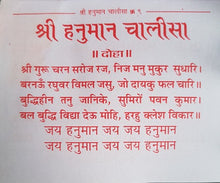 श्री हनुमान चालीसा
श्री हनुमान चालीसा
॥ दोहा ॥
श्री गुरू चरन सरोज रज, निज मनु मुकुर सुधारि।
बरनऊँ रघुवर विमल जसु, जो दायकु फल चारि॥
बुद्धिहीन तनु जानिके, सुमिरों पवन कुमार।
बल बुद्धि विद्या देऊ मोहि, हरहु क्लेश विकार॥
जय हनुमान जय जय हनुमान
जय हनुमान जय जय हनुमान